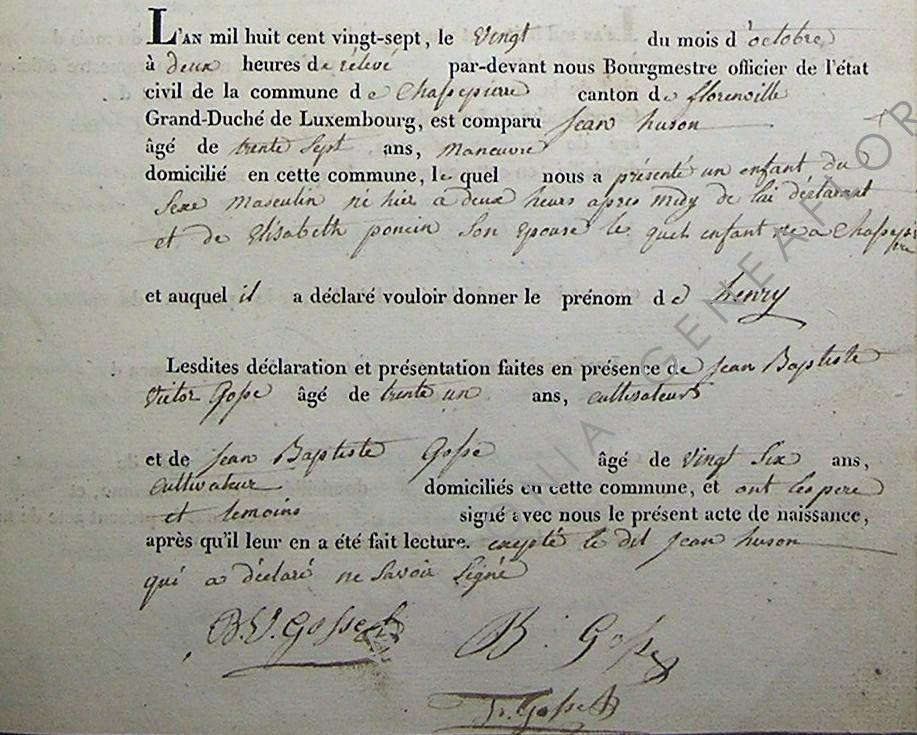 L'AN mil huit cent vingt-sept, le Vingt du mois d'octobre
à deux heures de relevé par-devant nous Bourgmestre officier de l'état
civil de la commune de Chassepierre canton de florenville
Grand-Duché de Luxembourg, est comparu jean huson
âgé de trente sept ans, maneuvre
domicilié en cette commune, le quel nous a présenté un enfant du
Sexe Masculin né hier a deux heurs apres midy de lui déclarant
et de Elisabeth poncin Son Epouse le quel enfant né a Chassepierre
et auquel il a déclaré vouloir donner le prénom de henry
Lesdites déclaration et présentation faites en présence de jean Baptiste
Victor Gosse âgé de trente un ans, cultivateur
et de jean Baptiste Gosse âgé de vingt Six ans,
cultivateur domiciliés en cette commune, et ont les pere
et temoins signé avec nous le présent acte de naissance,
après qu'il leur en a été fait lecture. excepté le dit jean huson
qui a déclaré ne Savoir Signé
B.V. Gosse
B. Gosse
Gosse
GENEAFLOR